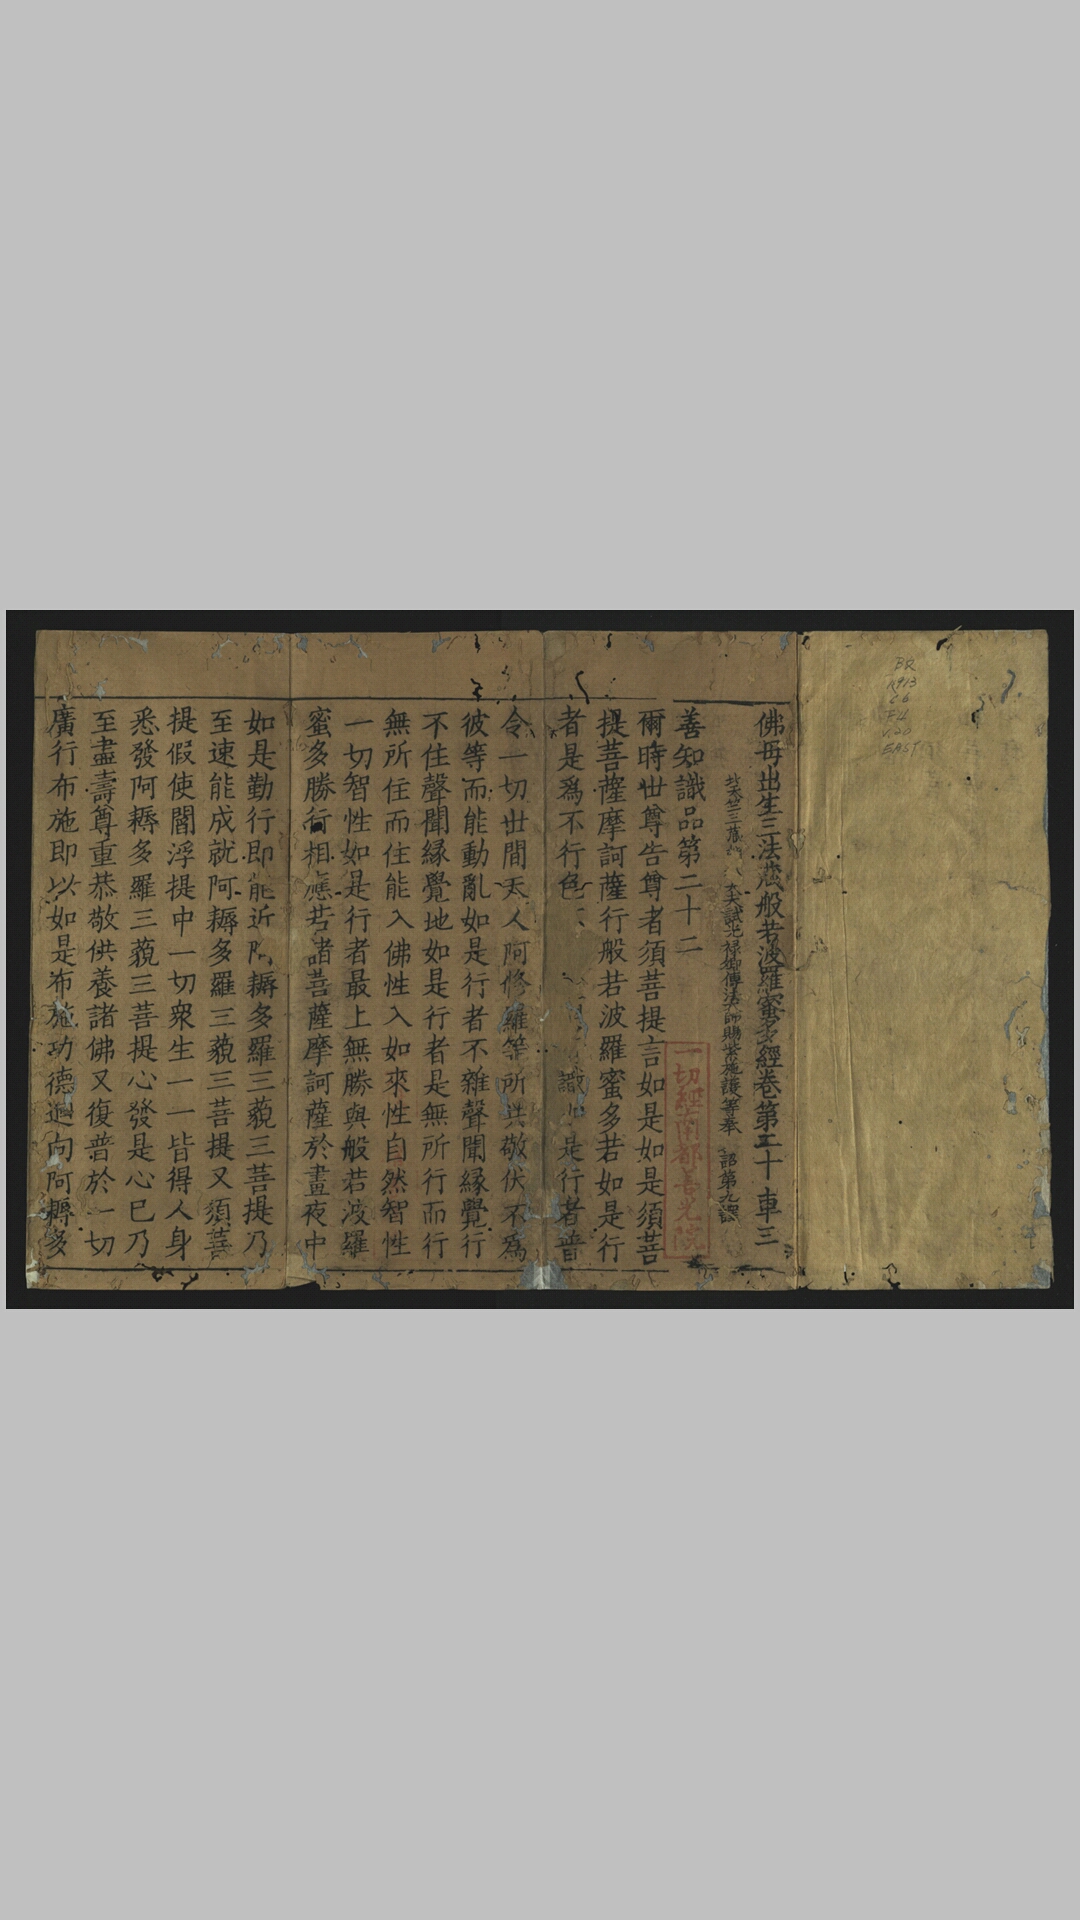 BR
F4
V.20
EAST
佛母出生三法藏般若波羅蜜多經卷第二十 車三
天竺三藏 大夫試光祿卿傳法大師賜紫施護等奉 詔第九譯
善知識品第二十二
一切經南都善光院
爾時世尊告尊者須菩提言如是如是須菩
提菩薩摩訶薩行般若波羅蜜多若如是行
者是爲不行色 識 是行者普
令一切世間天人阿修羅等所共敬伏不爲
彼等而能動亂如是行者不雜聲聞緣覺行
不住聲聞緣覺地如是行者是無所行而行
無所住而住能入佛性入如來性自然智性
一切智性如是行者最上無勝與般若波羅
蜜多勝行相應若諸菩薩摩訶薩於晝夜中
如是勤行即能近阿耨多羅三藐三菩提乃
至速能成就阿耨多羅三藐三菩提又須菩
提假使閻浮提中一切衆生一一皆得人身
悉發阿耨多羅三藐三菩提心發是心已乃
至盡壽尊重恭敬供養諸佛又復普於一切
廣行布施即以如是布施功德迴向阿耨多